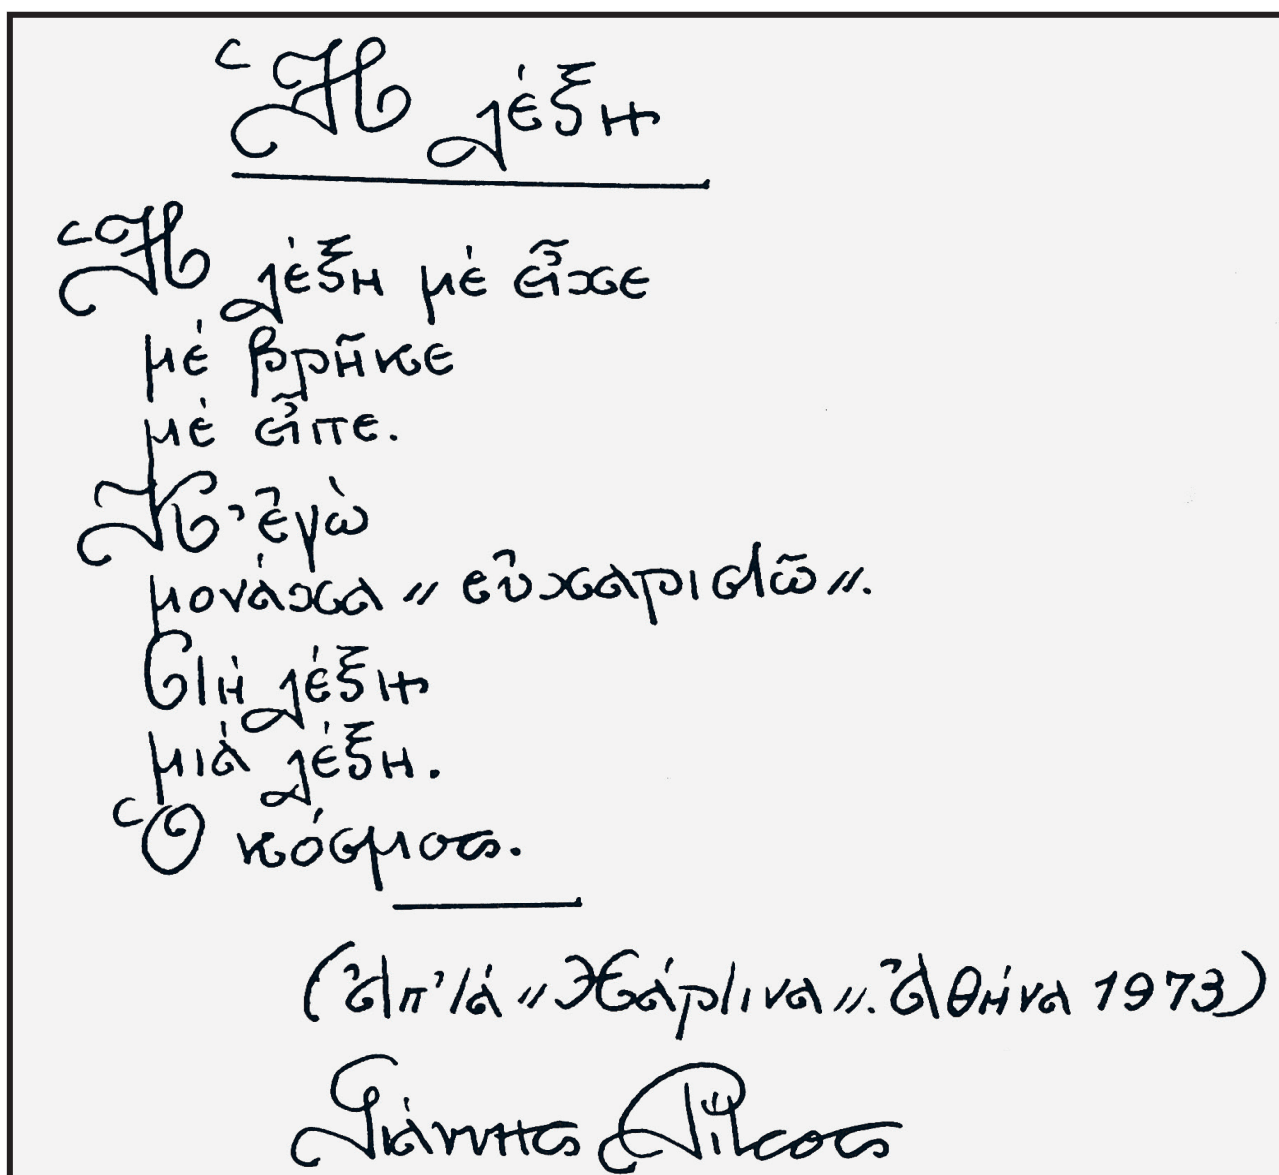 Ἡ λέξη
Ἡ λέξη μέ εἶχε
μέ βρῆκε
μέ εἶπε.
Κ' ἐγὼ
μονάχα " εὐχαριστῶ ".
Στή λέξη
μιά λέξη.
Ὁ κόσμος.
(ἀπ' τά " Χάρτινα ". Ἀθήνα 1973)
Γιάννης Ρίτσος